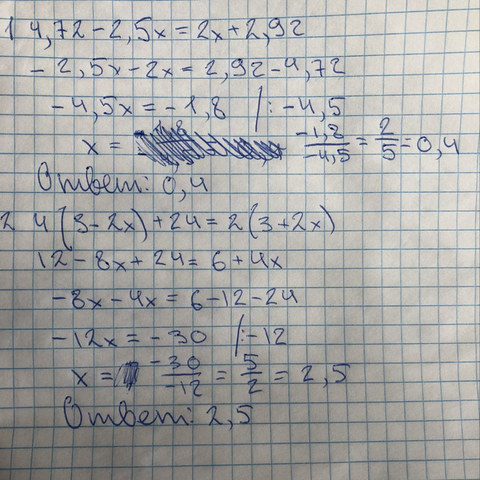 1 4,72-2,5x=2x+2,92
-2,5x-2x=2,92-4,72
-4,5x=-1,8 /:-4,5
x= -1,8/-4,5 = 2/5 = 0,4
Ответ: 0,4
2 4(3-2x)+24=2(3+2x)
12-8x+24=6+4x
-8x-4x=6-12-24
-12x=-30 /:-12
x= -30/-12 = 5/2 = 2,5
Ответ: 2,5